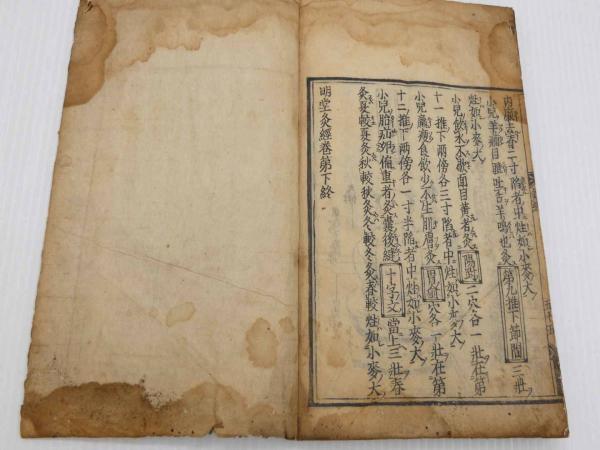 内廉去二寸陷者中炷如小麥大
小兒羊癇目瞪吐舌羊鳴也灸第九推下節間三壯
炷如小麥大
小兒飲水不歇面目黄者灸陽剛二穴各一壯在第
十一推下兩傍各三寸陷者中炷如小麥大
小兒羸瘦食飲少不生肌膚灸胃俞穴各一壯在第
十二推下兩傍各一寸半陷者中炷如小麥大
小兒胎疝卵偏重者灸囊後縫十字文當上三壯春
灸夏較夏灸秋較秋灸冬較冬灸春較炷如小麥大
明堂灸經卷第下終